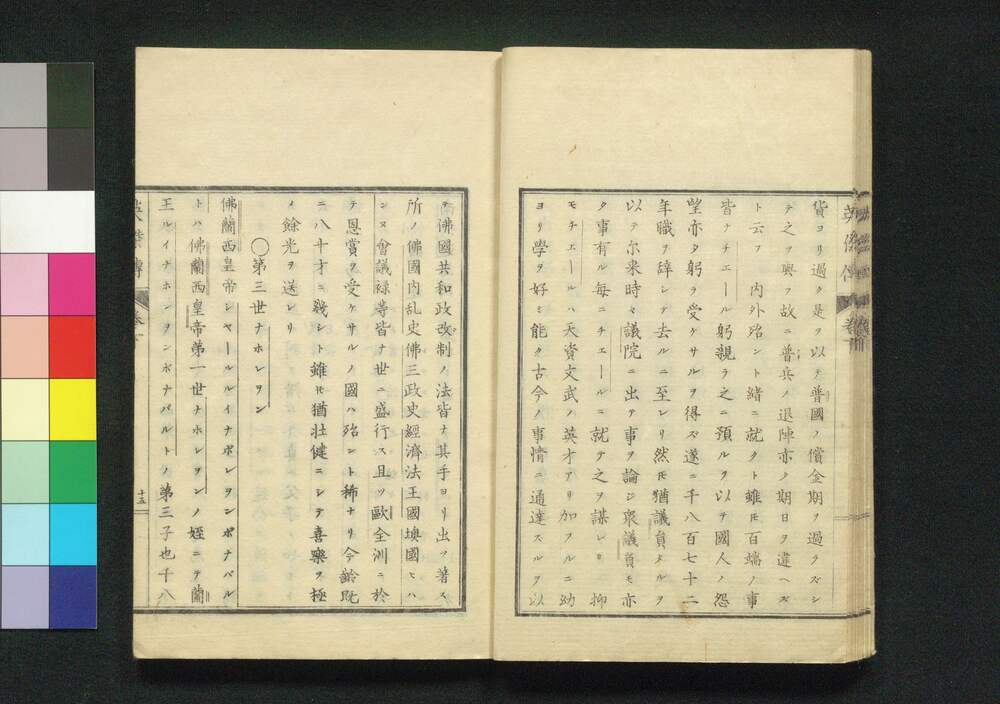 貨ヨリ過ク是ヲ以テ普國ノ償金期ヲ過ラズシ
テ之ヲ興フ故ニ普兵ノ退陣亦ノ期日ヲ違ヘズ
ト云フ 内外殆ント緒ニ就クト雖モ百端ノ事
皆ナチエール躬親ラ之ニ預ルヲ以テ國人ノ怨
望亦タ躬ヲ受ケサルヲ得ズ遂ニ千八百七十二
年職ヲ辞シテ去ルニ至レリ然モ猶議員タルヲ
以テ尓来時々議院ニ出テ事ヲ論ジ衆議員モ亦
タ事有ル毎ニチエールニ就テ之ヲ謀レリ 抑
モチエールハ天資文武ノ英才アリ加フルニ幼
ヨリ學ヲ好ミ能ク古今ノ事情ニ通達スルヲ以
テ佛國共和政改制ノ法皆ナ其手ヨリ出ツ著ス
所ノ佛國内乱史佛三政史經濟法王國墺國ヒハ
ンヌ會議録等皆ナ世ニ盛行ス且ツ歐全洲ニ於
テ恩賞ヲ受ケサルノ國ハ殆ント稀ナリ今齢既
ニ八十才ニ幾シト雖モ猶壮健ニシテ喜樂ヲ極
メ餘光ヲ送レリ
〇第三世ナホレヲン
佛蘭西皇帝シヤールルイナポレヲンボナパル
トハ佛蘭西皇帝第一世ナホレヲンノ姪ニテ蘭
王ルイナホンヲンボナパルトノ第三子也千八
十五